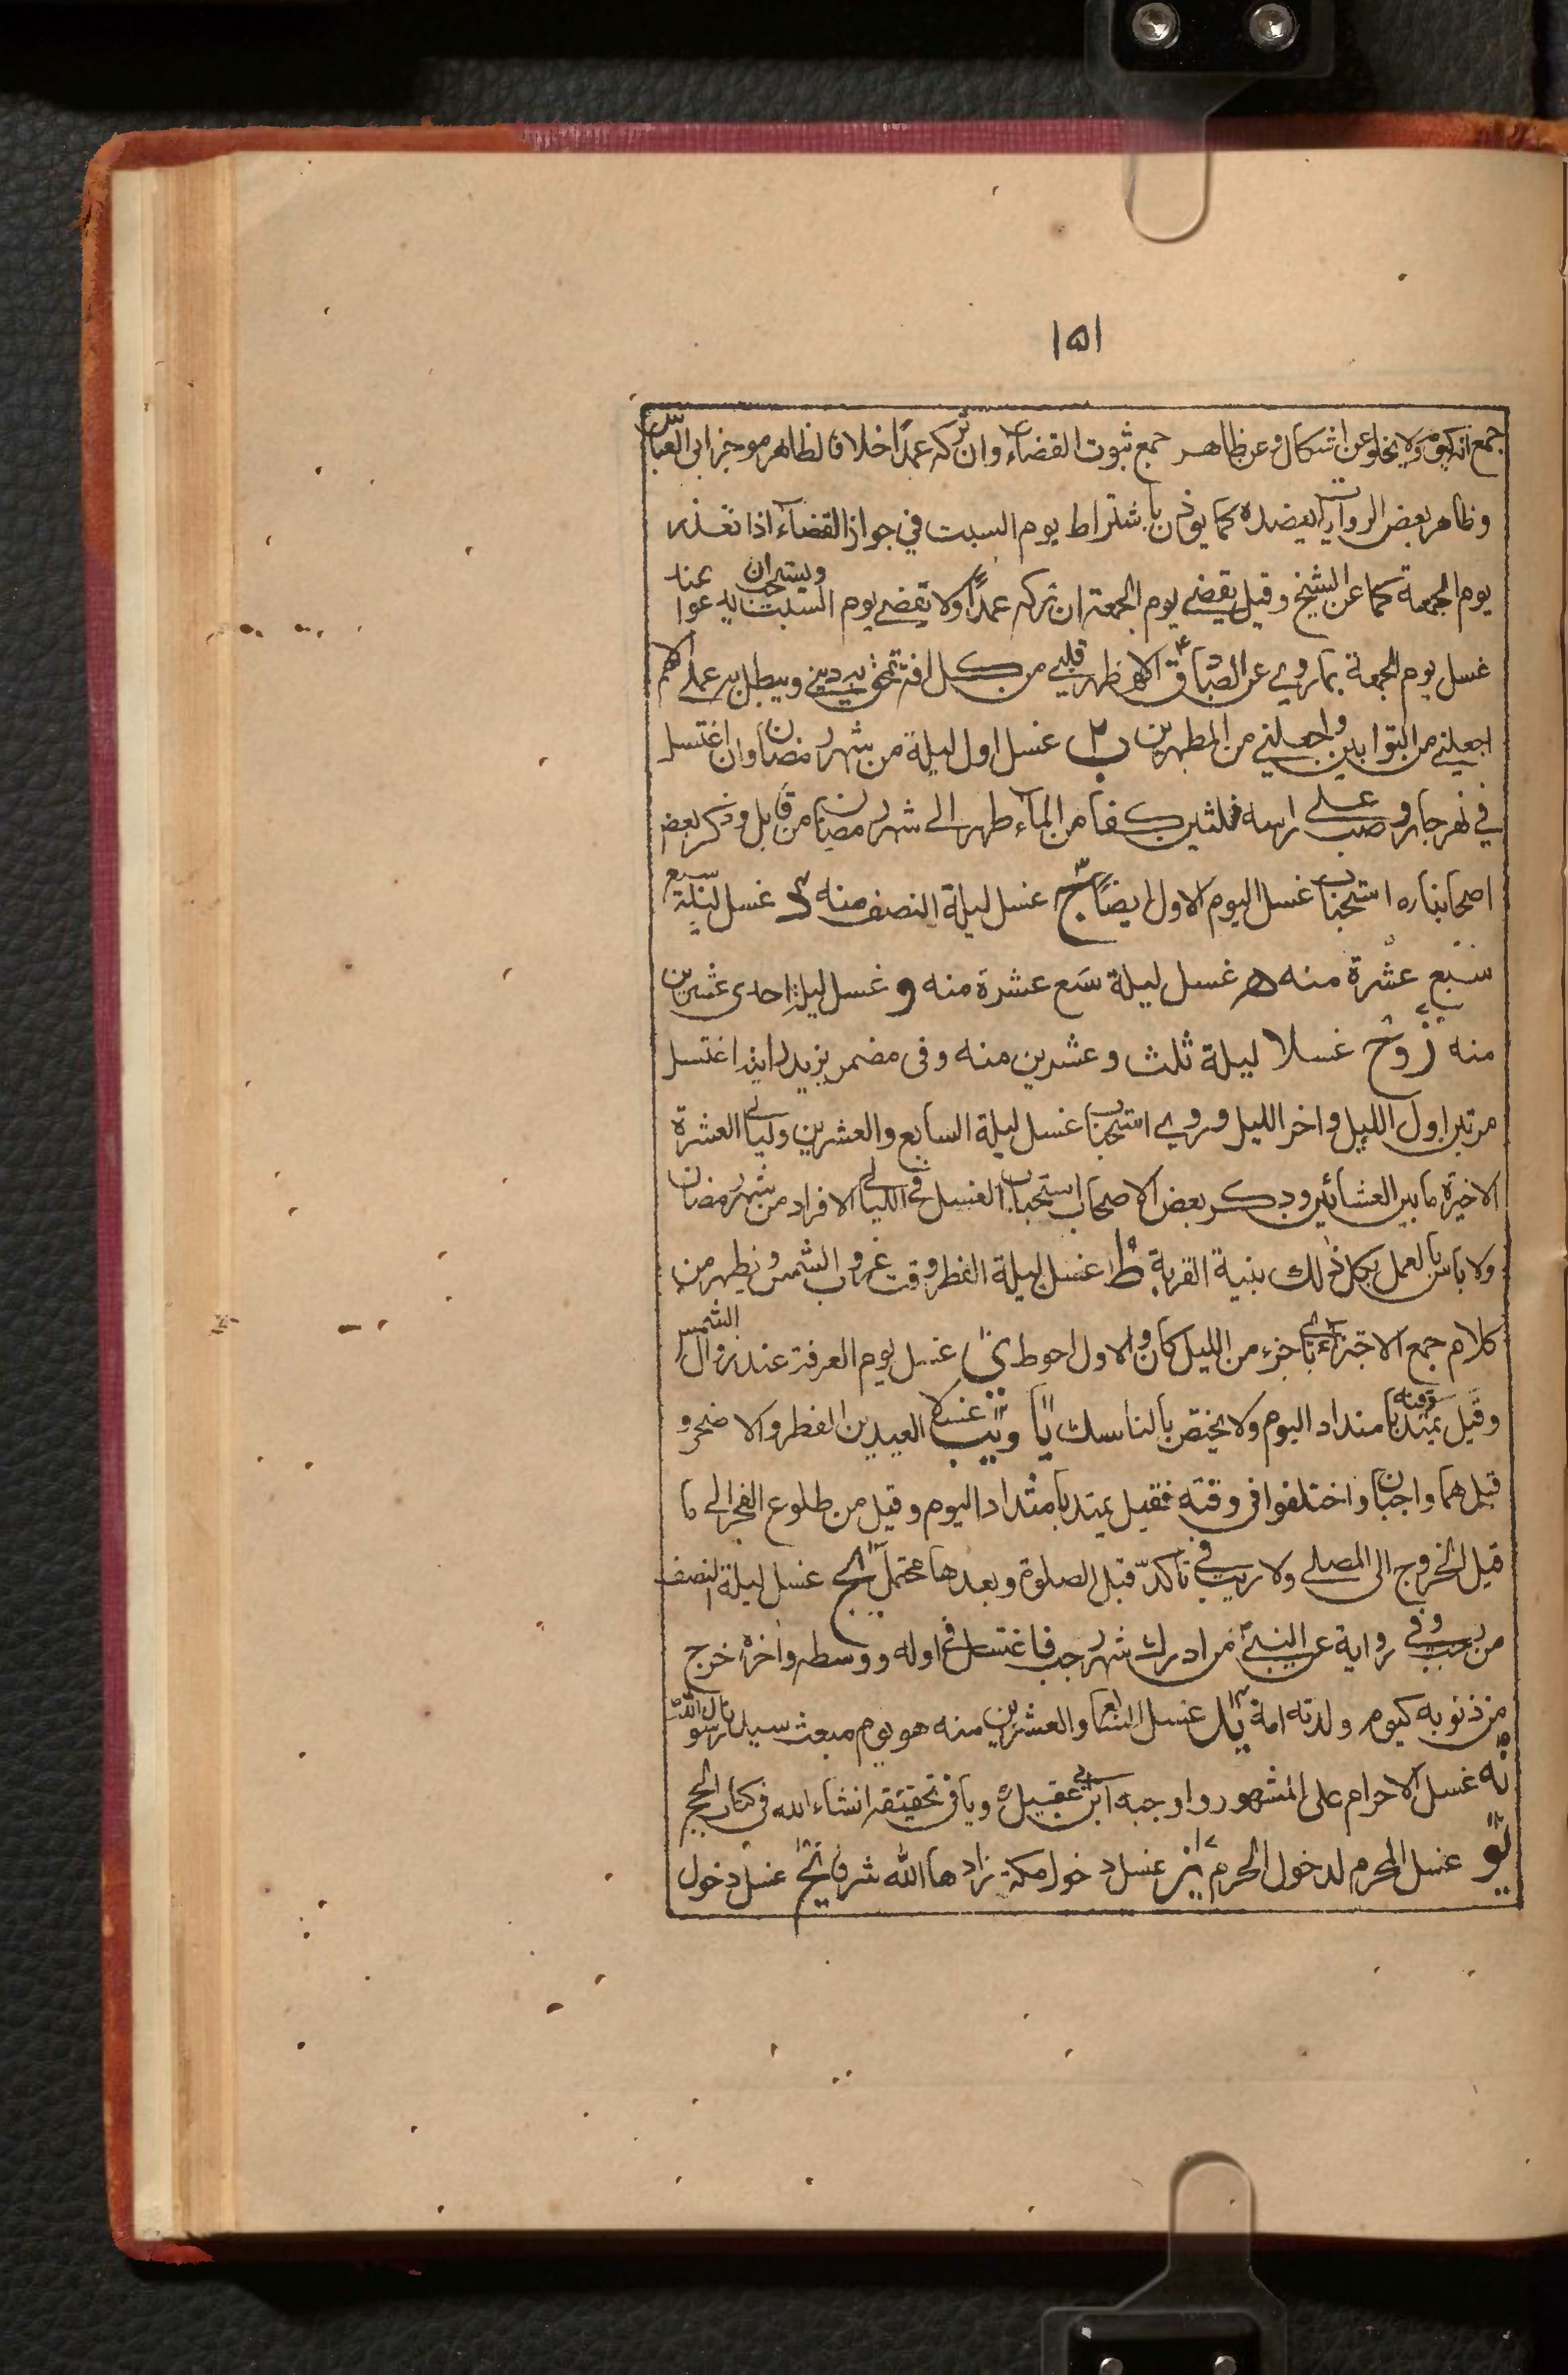 ١٥١
جمع انه كيوم ولا يخلو عن اشكال وعن ظاهر جمع ثبوت القضاء وان تركه عمدا خلافا لظاهر موجز ابى العباس
وظاهر بعض الروايات يعضده كما يوذن باشتراط يوم السبت في جواز القضاء اذا تعذر
يوم الجمعة كما عن الشيخ وقيل يقضى يوم الجمعة ان تركه عمدًا ولا يقضى يوم السبت ويستحب ان يدعوا عند
غسل يوم الجمعة بما روى عن الصادق اللهم طهر قلبي من كل افة تمحق به دينى ويبطل به عملى اللهم
اجعلنى من التوابين واجعلنى من المطهرين ب غسل اول ليلة من شهر رمضان وان اغتسل
في نهر جار وصب على راسه ثلثين كفا من الماء طهر الى شهر رمضان من قابل وذكر بعض
اصحابنا ره استحباب غسل اليوم الاول ايضًا ج غسل ليلة النصف منه د غسل ليلة سبع
سبع عشرة منه ه غسل ليلة تسع عشرة منه و غسل ليلة احدى عشرين
منه ز وح غسلا ليلة ثلث وعشرين منه وفى مضمر يزيد انه اغتسل
مرتين اول الليل واخر الليل وروى استحباب غسل ليلة السابع والعشرين وليالى العشرة
الاخيرة ما بين العشائين وذكر بعض الاصحاب استحباب الغسل في الليالى الافراد من شهر رمضان
ولا باس بالعمل بكل ذلك بنية القربة ط غسل ليلة الفطر وقت غروب الشمس ويظهر من
كلام جمع الاجتزاء باى جزء من الليل كان والاول احوط ى غسل يوم العرفة عند زوال الشمس
وقيل يمتد وقته بامتداد اليوم ولا يختص بالناسك يا ويب غسلا العيدين الفطر والاضحى و
قيل هما واجبان واختلفوا فى وقته فقيل يمتد بامتداد اليوم وقيل من طلوع الفجر الى ما
قبل الخروج الى المصلى ولا ريب في تاكده قبل الصلوة وبعدها محتمل يج غسل ليلة النصف
من رجب وفى رواية عن النبى من ادرك شهر رجب فاغتسل في اوله ووسطه واخره خرج
من ذنوبه كيوم ولدته امه يد غسل السابع والعشرين منه هو يوم مبعث سيدنا رسول الله
يه غسل الاحرام على المشهور واوجبه ابن ابى عقيل ره وياتى تحقيقه انشاء الله فى كتاب الحج
يو غسل المحرم لدخول الحرم يز غسل دخول مكة زادها الله شرفا يح غسل دخول